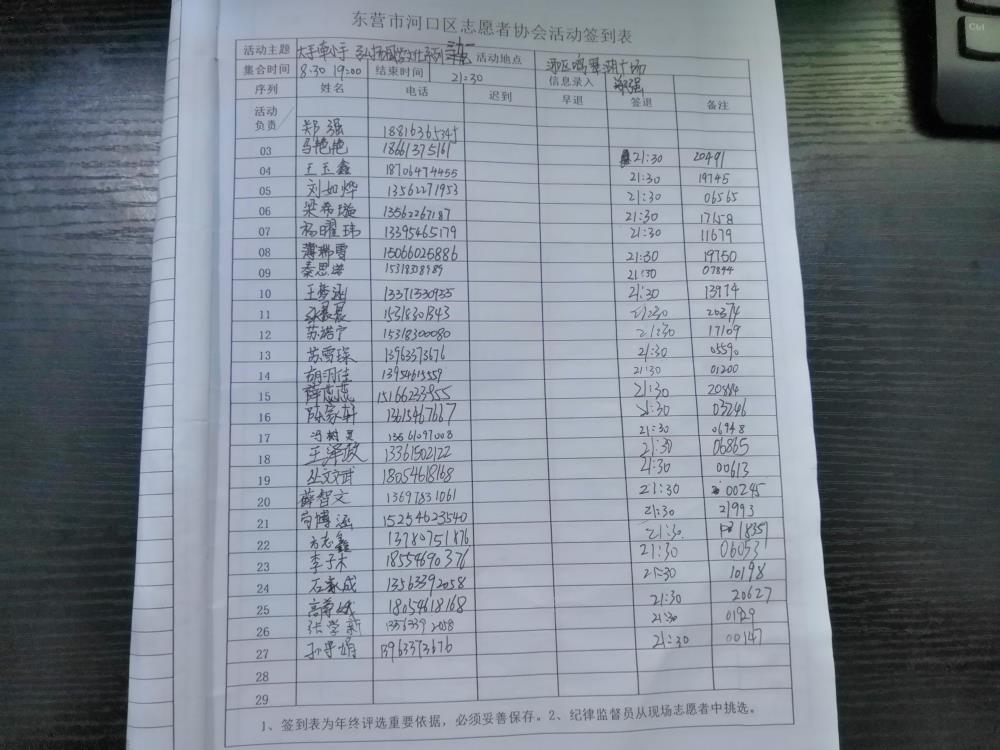 Ctrl
东营市河口区志愿者协会活动签到表
活动主题 大手牵小手 活动地点
集合时间 8:30 19:00 结束时间 21:30 信息录入 郑强
序列 姓名 电话 迟到 早退 签退 备注
活动负责 郑强 18816365345
03 马艳艳 18661375161 21:30 20491
04 王玉鑫 18706474455 21:30 19745
05 刘如烨 13562271953 21:30 06565
06 梁希璇 13562267187 21:30 17158
07 杨曜玮 13395465179 21:30 11679
08 薄瑞雪 15066025886 21:30 19750
09 秦思 15318308989 21:30 07844
10 王梦涵 13371530935 21:30 13974
11 晨晨 15318301343 21:30 20374
12 苏浩宁 15318300080 21:30 17109
13 苏雪琛 13963373676 21:30 05590
14 胡羽佳 13954615559 21:30 01200
15 薛恋恋 15166233955 21:30 20884
16 陈家轩 13615467667 21:30 03246
17 冯树昊 13561097008 21:30 06948
18 王泽政 13361502122 21:30 06865
19 丛文武 18054618168 21:30 00613
20 薛智文 13697831061 21:30 00245
21 苟博涵 15254623540 21:30 21993
22 方志鑫 13780751876 21:30 18351
23 李子木 18554690376 21:30 06053
24 石家成 13563392058 21:30 10198
25 18054618168 21:30 20627
26 张学新 13563392058 21:30 01929
27 13963373676 21:30 00147
28
29
1、签到表为年终评选重要依据，必须妥善保存。2、纪律监督员从现场志愿者中挑选。